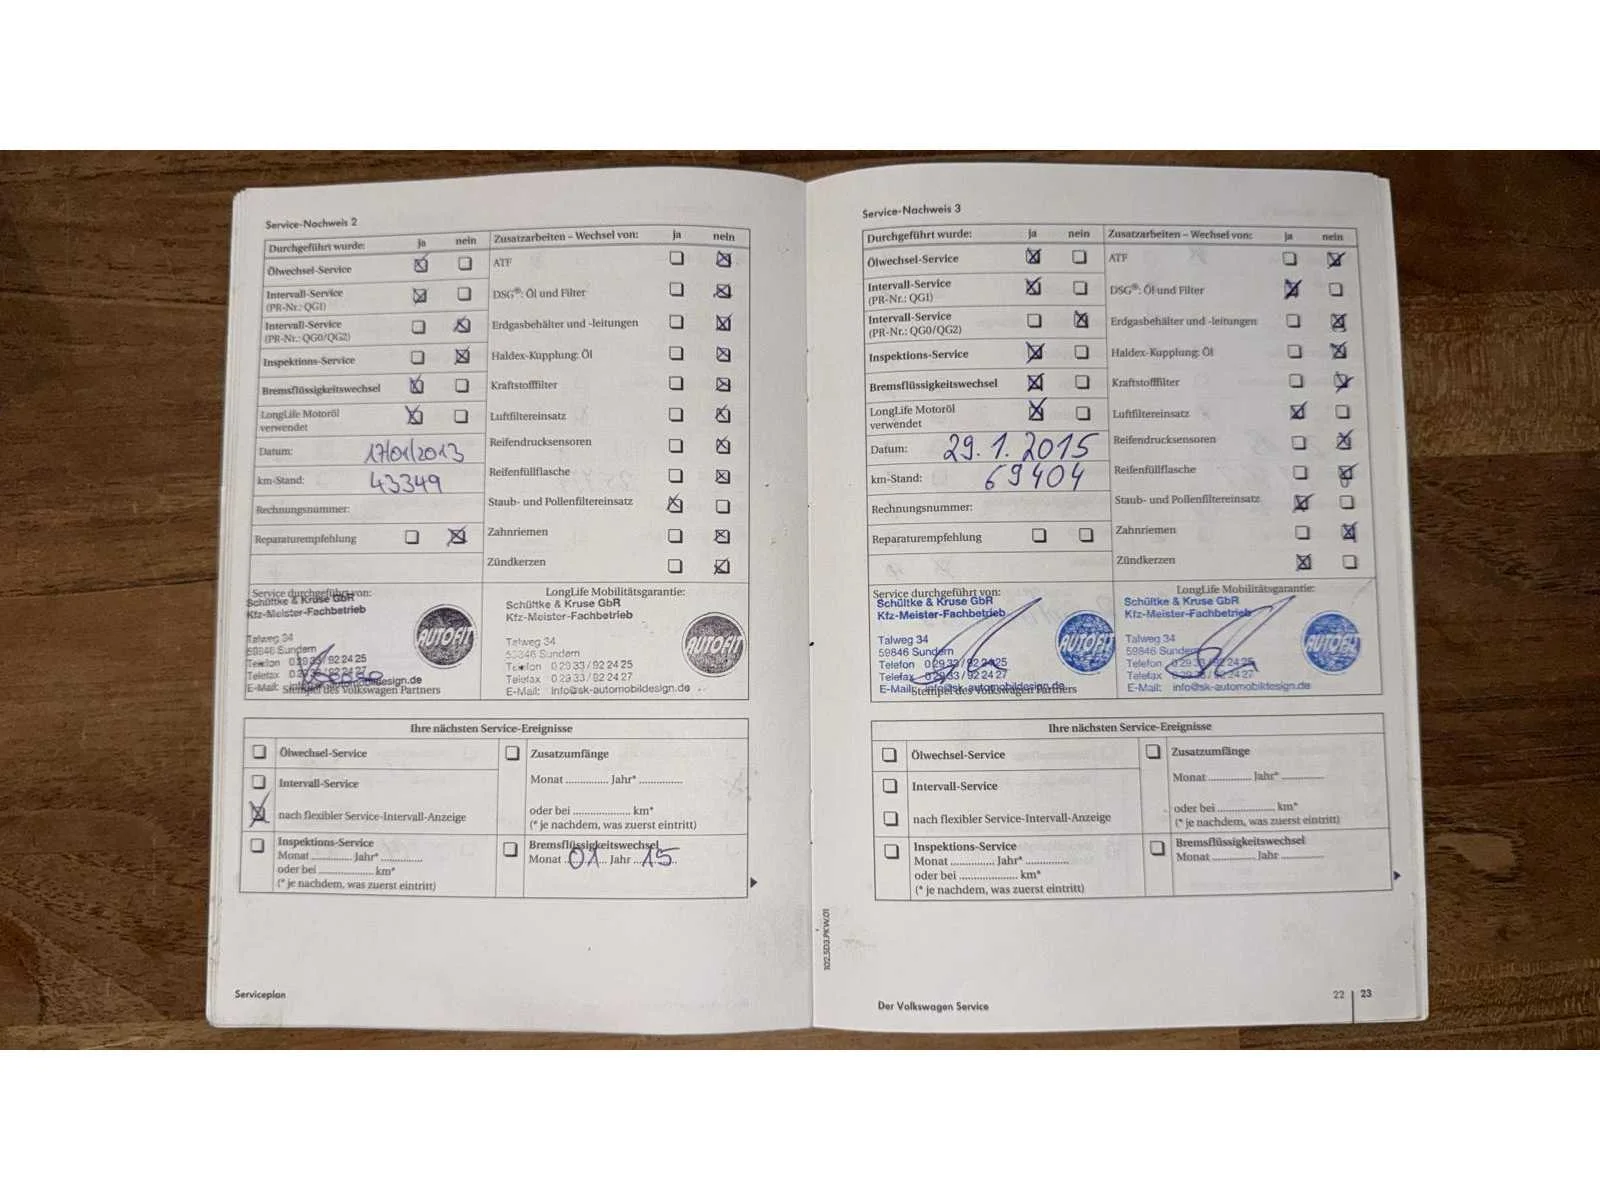 Service-Nachweis 2
Durchgeführt wurde: ja nein
Ölwechsel-Service
Intervall-Service
(PR-Nr.: QG1)
Intervall-Service
(PR-Nr.: QG0/QG2)
Inspektions-Service
Bremsflüssigkeitswechsel
LongLife Motoröl
verwendet
Datum: 17/01/2013
km-Stand: 43349
Rechnungsnummer:
Reparaturempfehlung
Zusatzarbeiten – Wechsel von: ja nein
ATF
DSG®: Öl und Filter
Erdgasbehälter und -leitungen
Haldex-Kupplung: Öl
Kraftstofffilter
Luftfiltereinsatz
Reifendrucksensoren
Reifenfüllflasche
Staub- und Pollenfiltereinsatz
Zahnriemen
Zündkerzen
Service durchgeführt von:
Schültke & Kruse GbR
Kfz-Meister-Fachbetrieb
Talweg 34
59846 Sundern
Telefon 0 29 33 / 92 24 25
Telefax 0 29 33 / 92 24 27
E-Mail:
Stempel des Volkswagen Partners
AUTOFIT
LongLife Mobilitätsgarantie:
Schültke & Kruse GbR
Kfz-Meister-Fachbetrieb
Talweg 34
59846 Sundern
Telefon 0 29 33 / 92 24 25
Telefax 0 29 33 / 92 24 27
E-Mail: info@sk-automobildesign.de
AUTOFIT
Ihre nächsten Service-Ereignisse
Ölwechsel-Service
Intervall-Service
nach flexibler Service-Intervall-Anzeige
Inspektions-Service
Monat ............. Jahr* .............
oder bei .................... km*
(* je nachdem, was zuerst eintritt)
Zusatzumfänge
Monat ............. Jahr* .............
oder bei .................... km*
(* je nachdem, was zuerst eintritt)
Bremsflüssigkeitswechsel
Monat 01 Jahr 15
Serviceplan
Service-Nachweis 3
Durchgeführt wurde: ja nein
Ölwechsel-Service
Intervall-Service
(PR-Nr.: QG1)
Intervall-Service
(PR-Nr.: QG0/QG2)
Inspektions-Service
Bremsflüssigkeitswechsel
LongLife Motoröl
verwendet
Datum: 29.1.2015
km-Stand: 69404
Rechnungsnummer:
Reparaturempfehlung
Zusatzarbeiten – Wechsel von: ja nein
ATF
DSG®: Öl und Filter
Erdgasbehälter und -leitungen
Haldex-Kupplung: Öl
Kraftstofffilter
Luftfiltereinsatz
Reifendrucksensoren
Reifenfüllflasche
Staub- und Pollenfiltereinsatz
Zahnriemen
Zündkerzen
Service durchgeführt von:
Schültke & Kruse GbR
Kfz-Meister-Fachbetrieb
Talweg 34
59846 Sundern
Telefon 0 29 33 / 92 24 25
Telefax 0 29 33 / 92 24 27
E-Mail: info@sk-automobildesign.de
Stempel des Volkswagen Partners
AUTOFIT
LongLife Mobilitätsgarantie:
Schültke & Kruse GbR
Kfz-Meister-Fachbetrieb
Talweg 34
59846 Sundern
Telefon 0 29 33 / 92 24 25
Telefax 0 29 33 / 92 24 27
E-Mail: info@sk-automobildesign.de
AUTOFIT
Ihre nächsten Service-Ereignisse
Ölwechsel-Service
Intervall-Service
nach flexibler Service-Intervall-Anzeige
Inspektions-Service
Monat ............. Jahr* .............
oder bei .................... km*
(* je nachdem, was zuerst eintritt)
Zusatzumfänge
Monat ............. Jahr* .............
oder bei .................... km*
(* je nachdem, was zuerst eintritt)
Bremsflüssigkeitswechsel
Monat ............. Jahr .............
102.5D3.PKW.01
Der Volkswagen Service
22 | 23